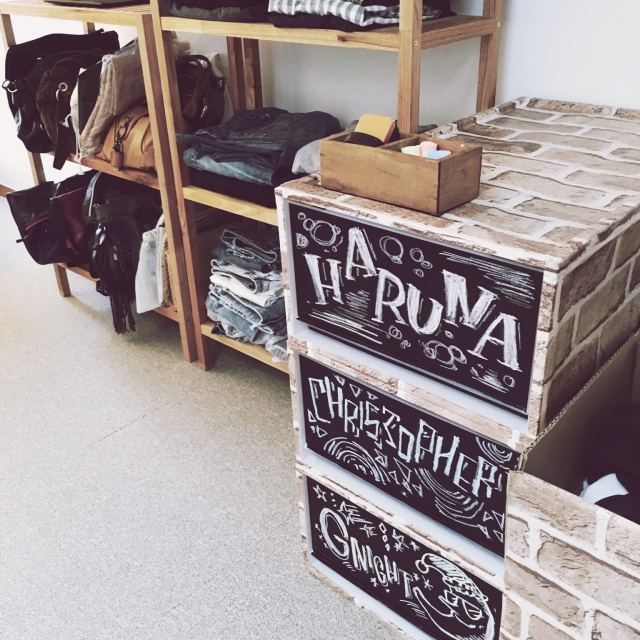 HARUNA
CHRISTOPHER
GNIGHT